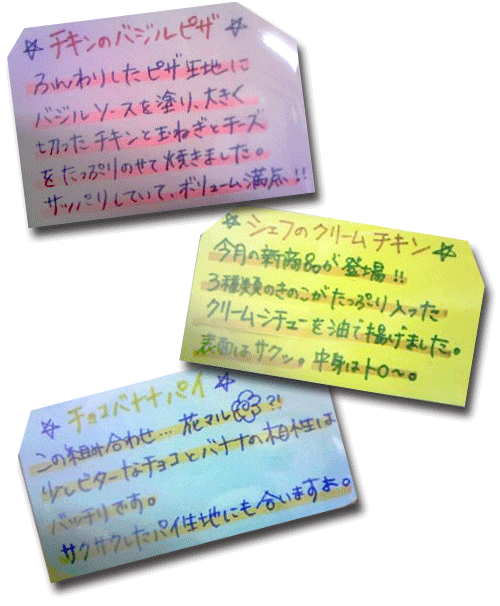 ☆ チキンのバジルピザ ☆
ふんわりしたピザ生地に
バジルソースを塗り、大きく
切ったチキンと玉ねぎとチーズ
をたっぷりのせて焼きました。
サッパリしていて、ボリューム満点!!
☆ シェフのクリームチキン ☆
今月の新商品が登場!!
3種類のきのこがたっぷり入った
クリームシチューを油で揚げました。
表面はサクッ。中身はトロ〜。
☆ チョコバナナパイ ☆
この組み合わせ…花マル?!
少しビターなチョコとバナナの相性は
バッチリです。
サクサクしたパイ生地にも合いますよ。